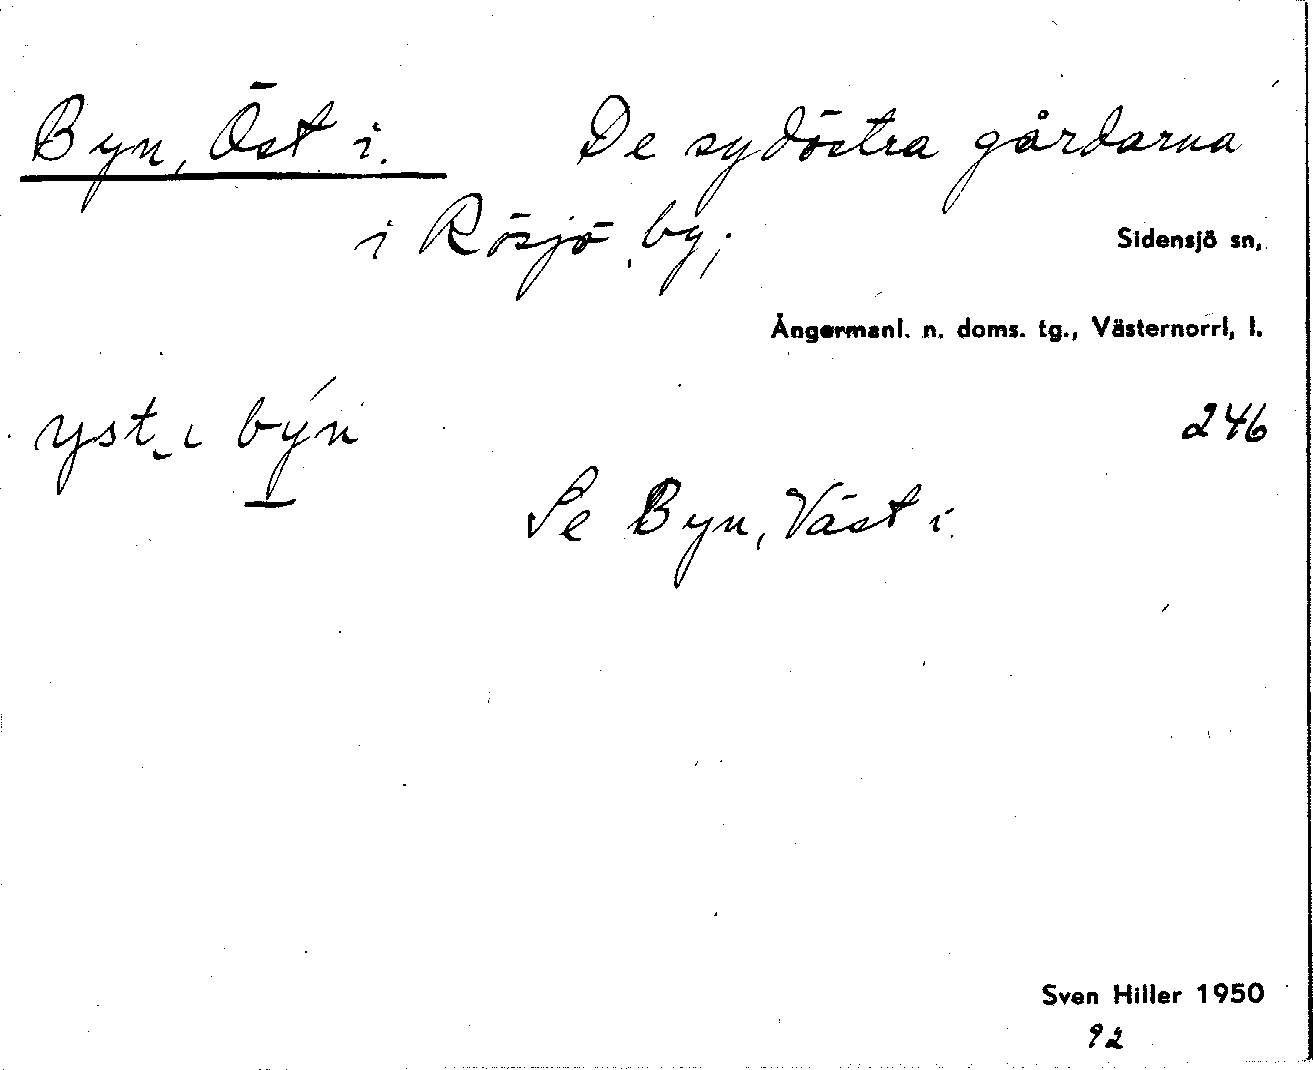 Byn, Öst i. De sydöstra gårdarna
i Rösjö by;
Sidensjö sn,
Ångermanl. n. doms. tg., Västernorrl, l.
yst‿ı býn
246
Se Byn, Väst i.
Sven Hiller 1950
92